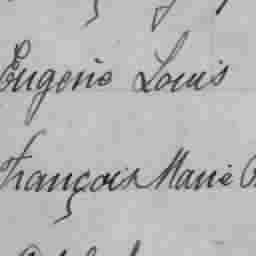 Eugène Louis
François Marie